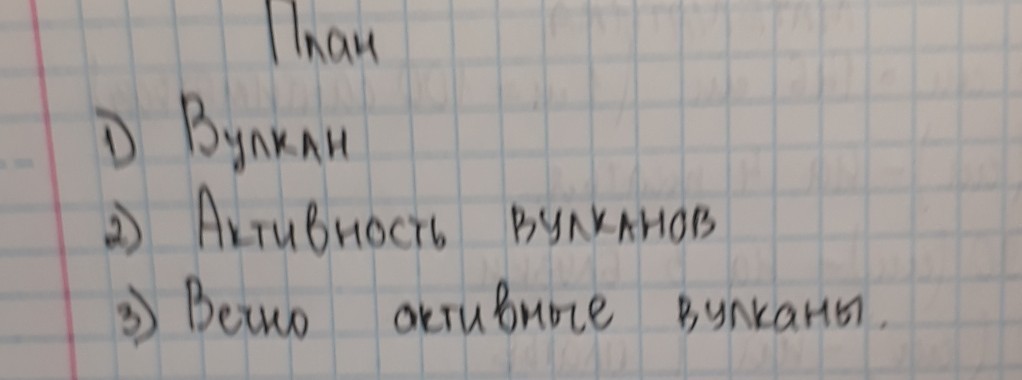 План
1) Вулкан
2) Активность вулканов
3) Вечно активные вулканы.